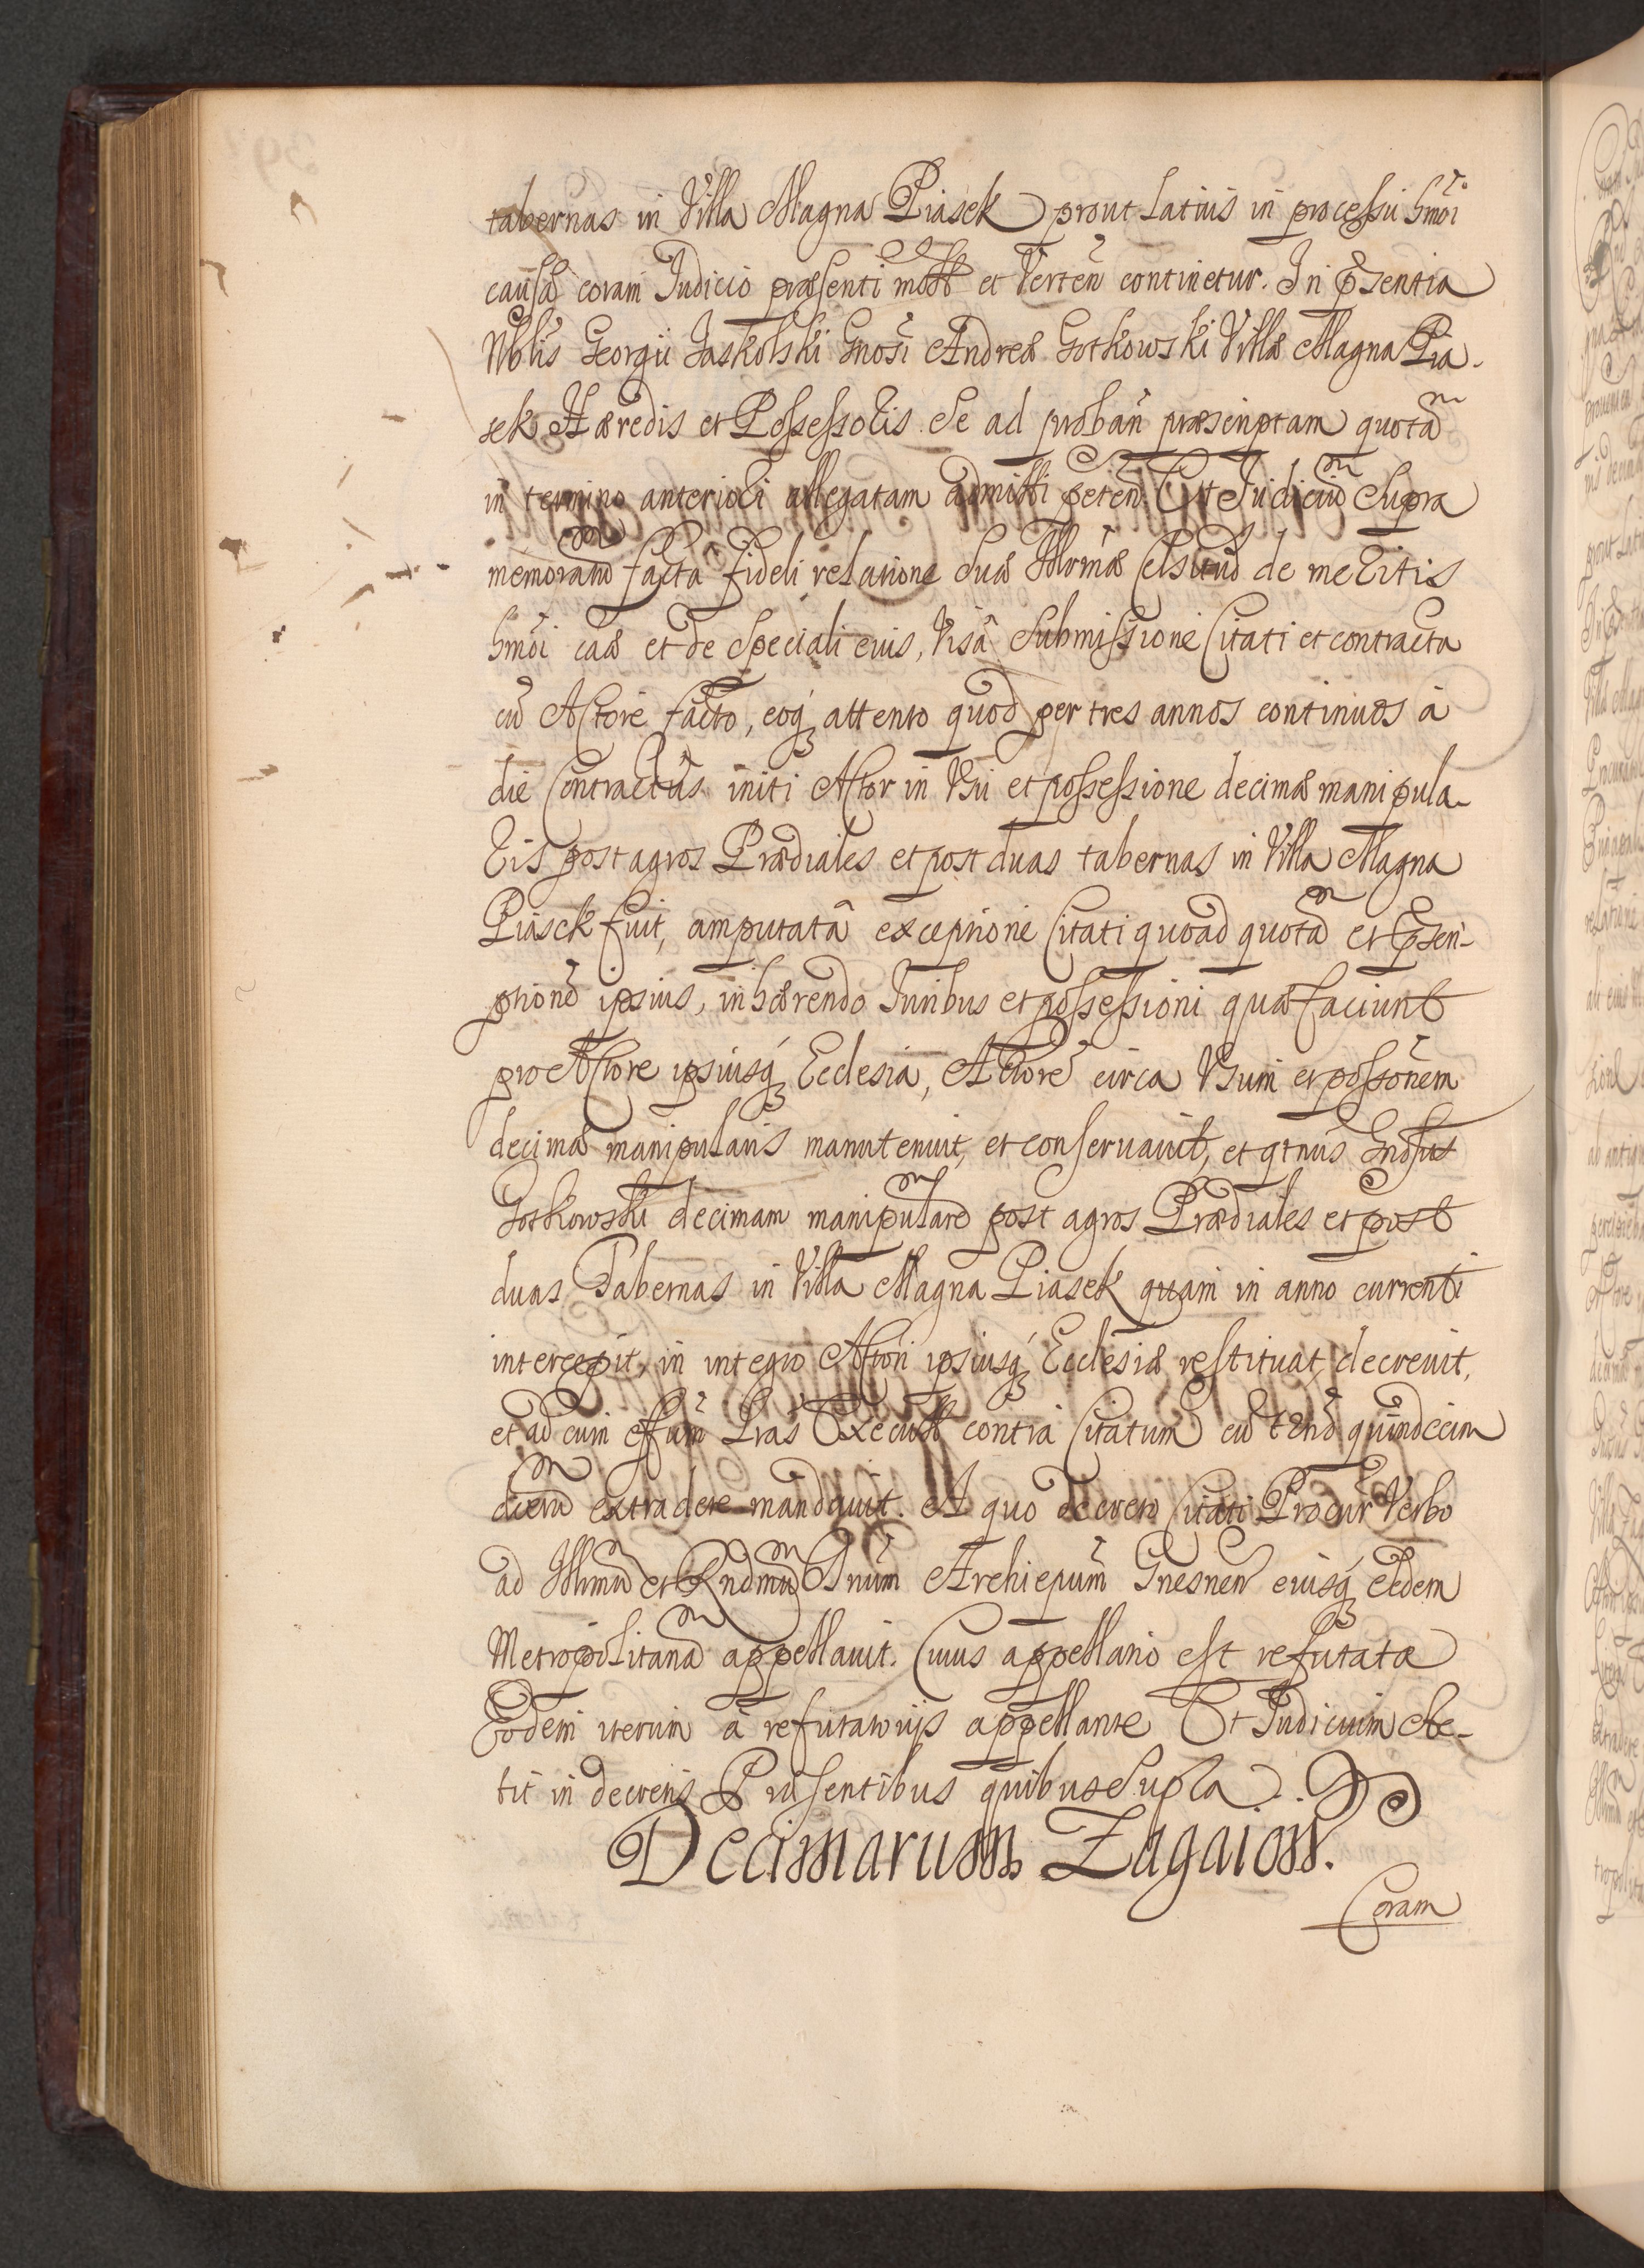 tabernas in Villa Magna Piasek prout Latius in processu hmõi
causæ coram Iudicio præsenti mott et Verteñ continetur. In p̃sentia
Nblis Georgii Jaskolski Gnosi Andreæ Gotkowski Villæ Magna Pia-
sek Hæredis et Possessoris. Se ad probañ præscriptam quotã
in termino anteriori allegatam admitti peteñ. Et Iudiciũ Supra
memoratũ factâ fideli relatione Suæ Illrmæ Celsitud de meritis
hmõi caæ et de Speciali eius, Visâ Submissione Citati et contractu
cũ Actore facto, eoq; attento quod per tres annos continuos à
die Contractûs initi Actor in Usu et possessione decimæ manipula-
ris post agros Prædiales et post duas tabernas in Villa Magna
Piasek fuit, amputatâ exceptione Citati quoad quotã et P̃scri-
ptionẽ ipsius, inhærendo Iuribus et possessioni quæ faciunt
pro Actore ipsiusq; Ecclesia, Actorẽ circa Usum et possõnem
decimæ manipularis manutenuit, et conservavit, et qtnus Gnosus
Gotkowski decimam manipularẽ post agros Prædiales et post
duas Tabernas in Villa Magna Piasek quam in anno currenti
intercepit, in integro Actori ipsiusq; Ecclesiæ restituat, decrevit,
et ad eum effum Lras Execut contra Citatum cũ tẽnõ quindecim
dierũ extradere mandavit. A quo decreto Citati Procur Verbo
ad Illmũ et Rndmũ Dnum Archiepum Gnesneñ eiusq; Sedem
Metropolitanã appellavit. Cuius appellatio est refutata
Eodem iterum à refutatorijs appellante Et Iudicium Ste-
tit in decretis Præsentibus quibus Supra.
Decimarum Zagaiow.
Coram